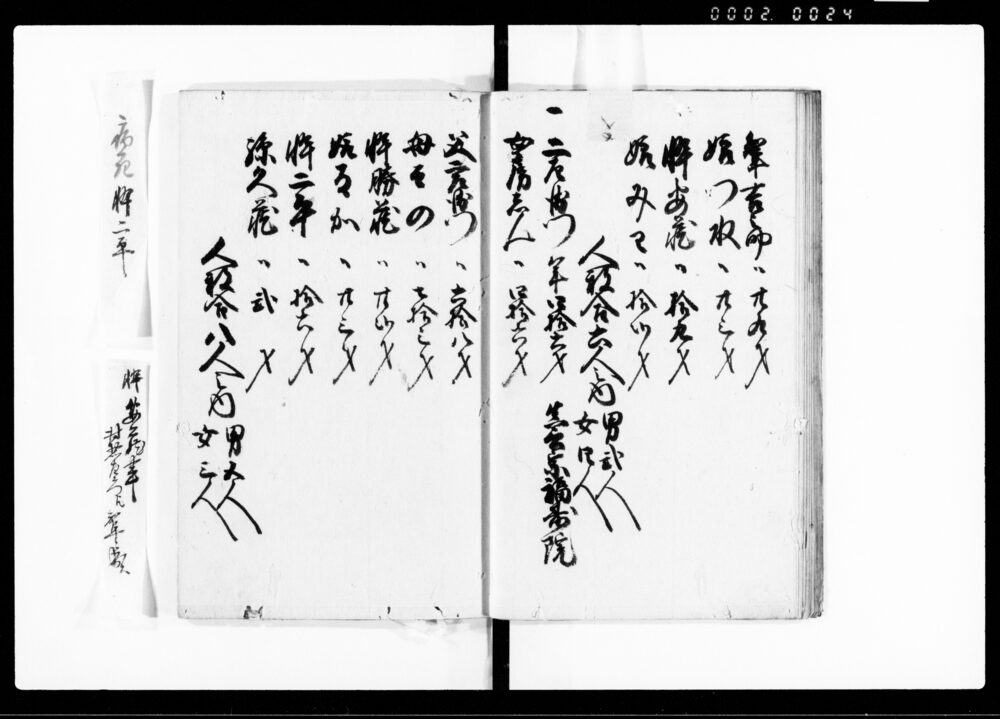 0002.0024
聟吉郎 〃 廿九才
娘つね 〃 廿三才
倅安蔵 〃 拾九才
娘みわ 〃 拾四才
人数合六人之内 男弐人
女四人
一 二左衛門 年四拾六才 真言宗福寿院
女房しん 〃 四拾六才
父 〃 七拾八才
母その 〃 七拾三才
倅勝蔵 〃 廿四才
娘 〃 廿三才
倅二平 〃 拾六才
孫久蔵 〃 弐才
人数合八人之内 男五人
女三人
病死 倅二平
倅安蔵事
聟